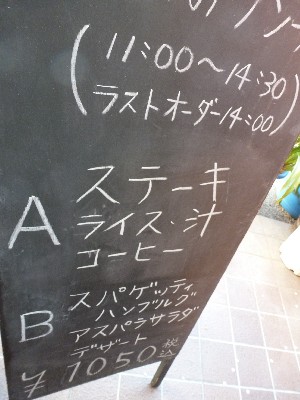 (11:00〜14:30
ラストオーダー14:00)
A ステーキ
ライス・汁
コーヒー
B スパゲッティ
ハンブルグ
アスパラサラダ
デザート
¥1050税込